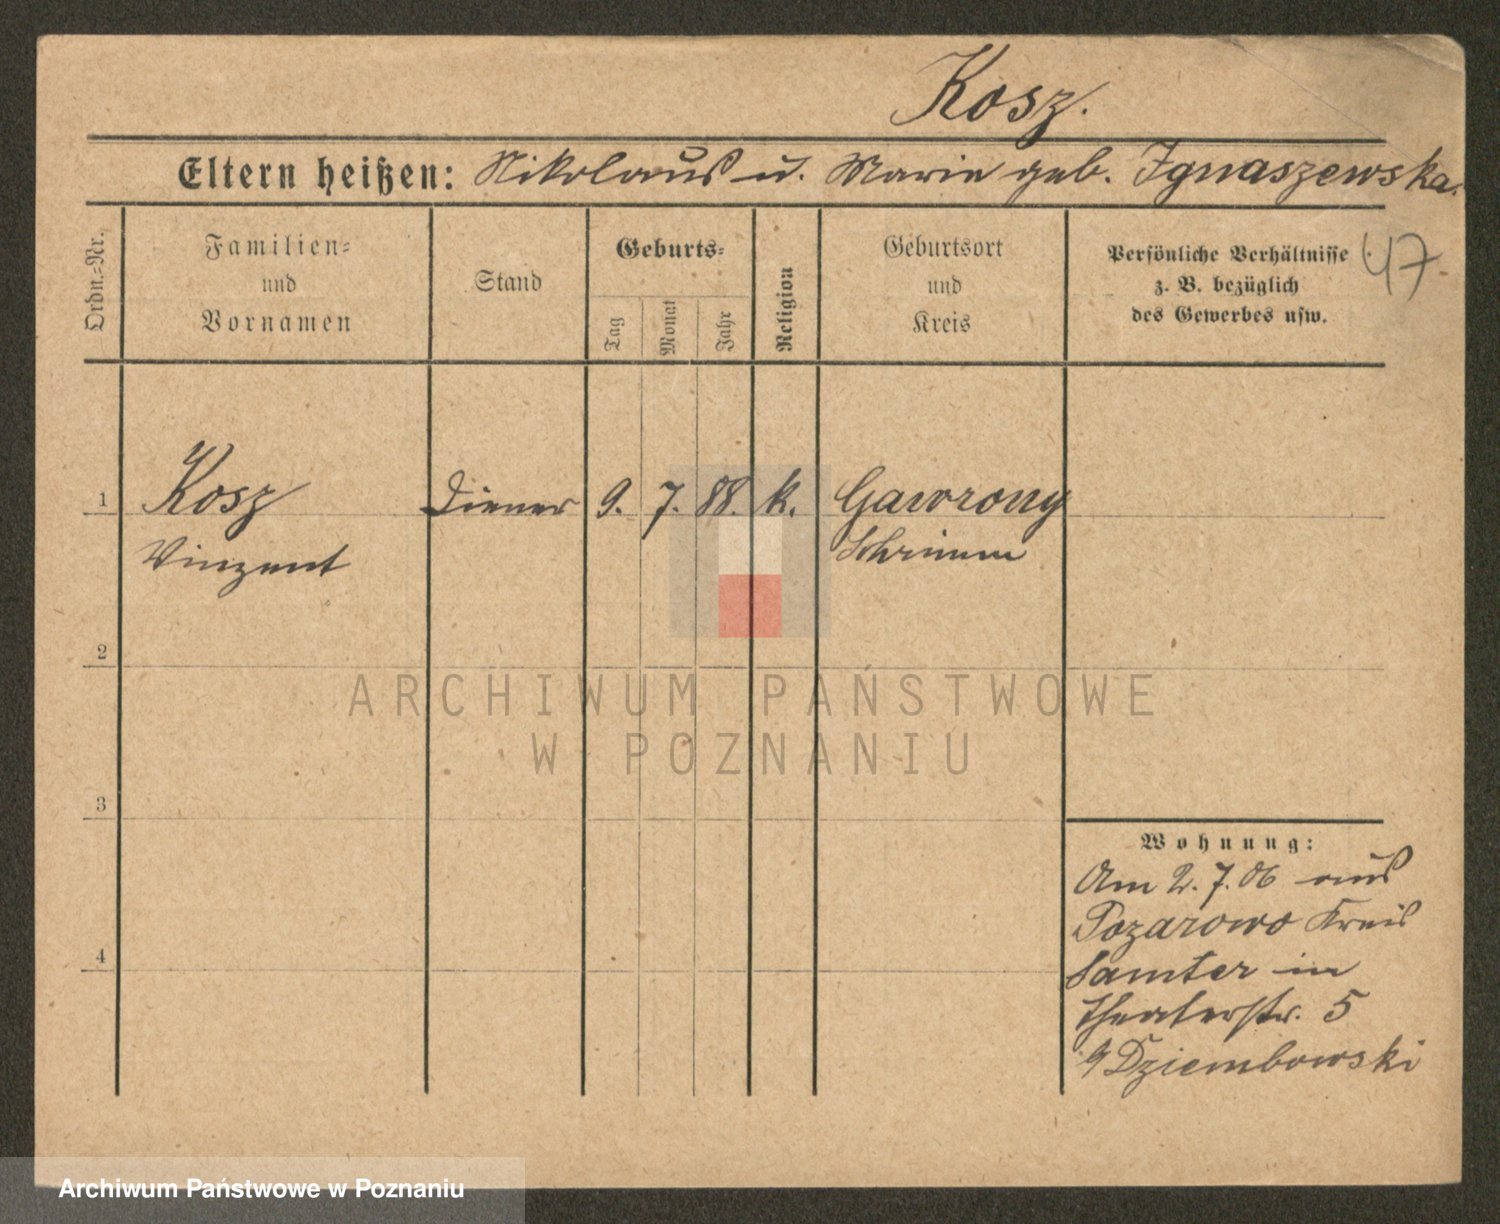 Kosz.
Eltern heißen: Nikolaus u. Marie geb. Ignaszewska.
Ordn.-Nr.
Familien-
und
Vornamen
Stand
Geburts-
Tag
Monat
Jahr
Religion
Geburtsort
und
Kreis
Persönliche Verhältnisse
z. B. bezüglich
des Gewerbes usw.
47.
1 Kosz Diener 9. 7. 88. k. Gawrony
Vinzent Schrimm
2
ARCHIWUM PAŃSTWOWE
W POZNANIU
3
Wohnung:
Am 2.7.06 aus
Pozarowo Kreis
Samter in
Theaterstr. 5
Dziembowski
4
Archiwum Państwowe w Poznaniu